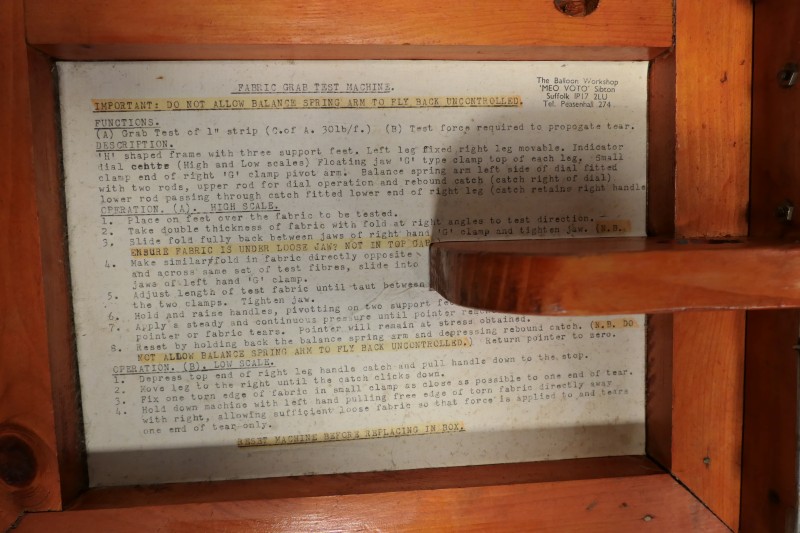 FABRIC GRAB TEST MACHINE.
The Balloon Workshop
'MEO VOTO' Sibton
Suffolk IP17 2LU
Tel. Peasenhall 274
IMPORTANT: DO NOT ALLOW BALANCE SPRING ARM TO FLY BACK UNCONTROLLED.
FUNCTIONS.
(A) Grab Test of 1" strip (C.of A. 30lb/f.) (B) Test force required to propogate tear.
DESCRIPTION.
'H' shaped frame with three support feet. Left leg fixed, right leg movable. Indicator
dial centre (High and Low scales) Floating jaw 'G' type clamp top of each leg, Small
clamp end of right 'G' clamp pivot arm. Balance spring arm left side of dial fitted
with two rods, upper rod for dial operation and rebound catch (catch right of dial)
lower rod passing through catch fitted lower end of right leg (catch retains right handle
OPERATION. (A). HIGH SCALE.
1. Place on feet over the fabric to be tested.
2. Take double thickness of fabric with fold at right angles to test direction.
3. Slide fold fully back between jaws of right hand 'G' clamp and tighten jaw. (N.B.
ENSURE FABRIC IS UNDER LOOSE JAW NOT IN TOP GAP
4. Make similar fold in fabric directly opposite
and across same set of test fibres, slide into
jaws of left hand 'G' clamp.
5. Adjust length of test fabric until taut between
the two clamps. Tighten jaw.
6. Hold and raise handles, pivotting on two support feet
7. Apply a steady and continuous pressure until pointer
pointer or fabric tears. Pointer will remain at stress obtained.
8. Reset by holding back the balance spring arm and depressing rebound catch. (N.B. DO
NOT ALLOW BALANCE SPRING ARM TO FLY BACK UNCONTROLLED.) Return pointer to zero.
OPERATION. (B). LOW SCALE.
1. Depress top end of right leg handle catch and pull handle down to the stop.
2. Move leg to the right until the catch clicks down.
3. Fix one torn edge of fabric in small clamp as close as possible to one end of tear.
4. Hold down machine with left hand pulling free edge of torn fabric directly away
with right, allowing sufficient loose fabric so that force is applied to and tears
one end of tear only.
RESET MACHINE BEFORE REPLACING IN BOX.